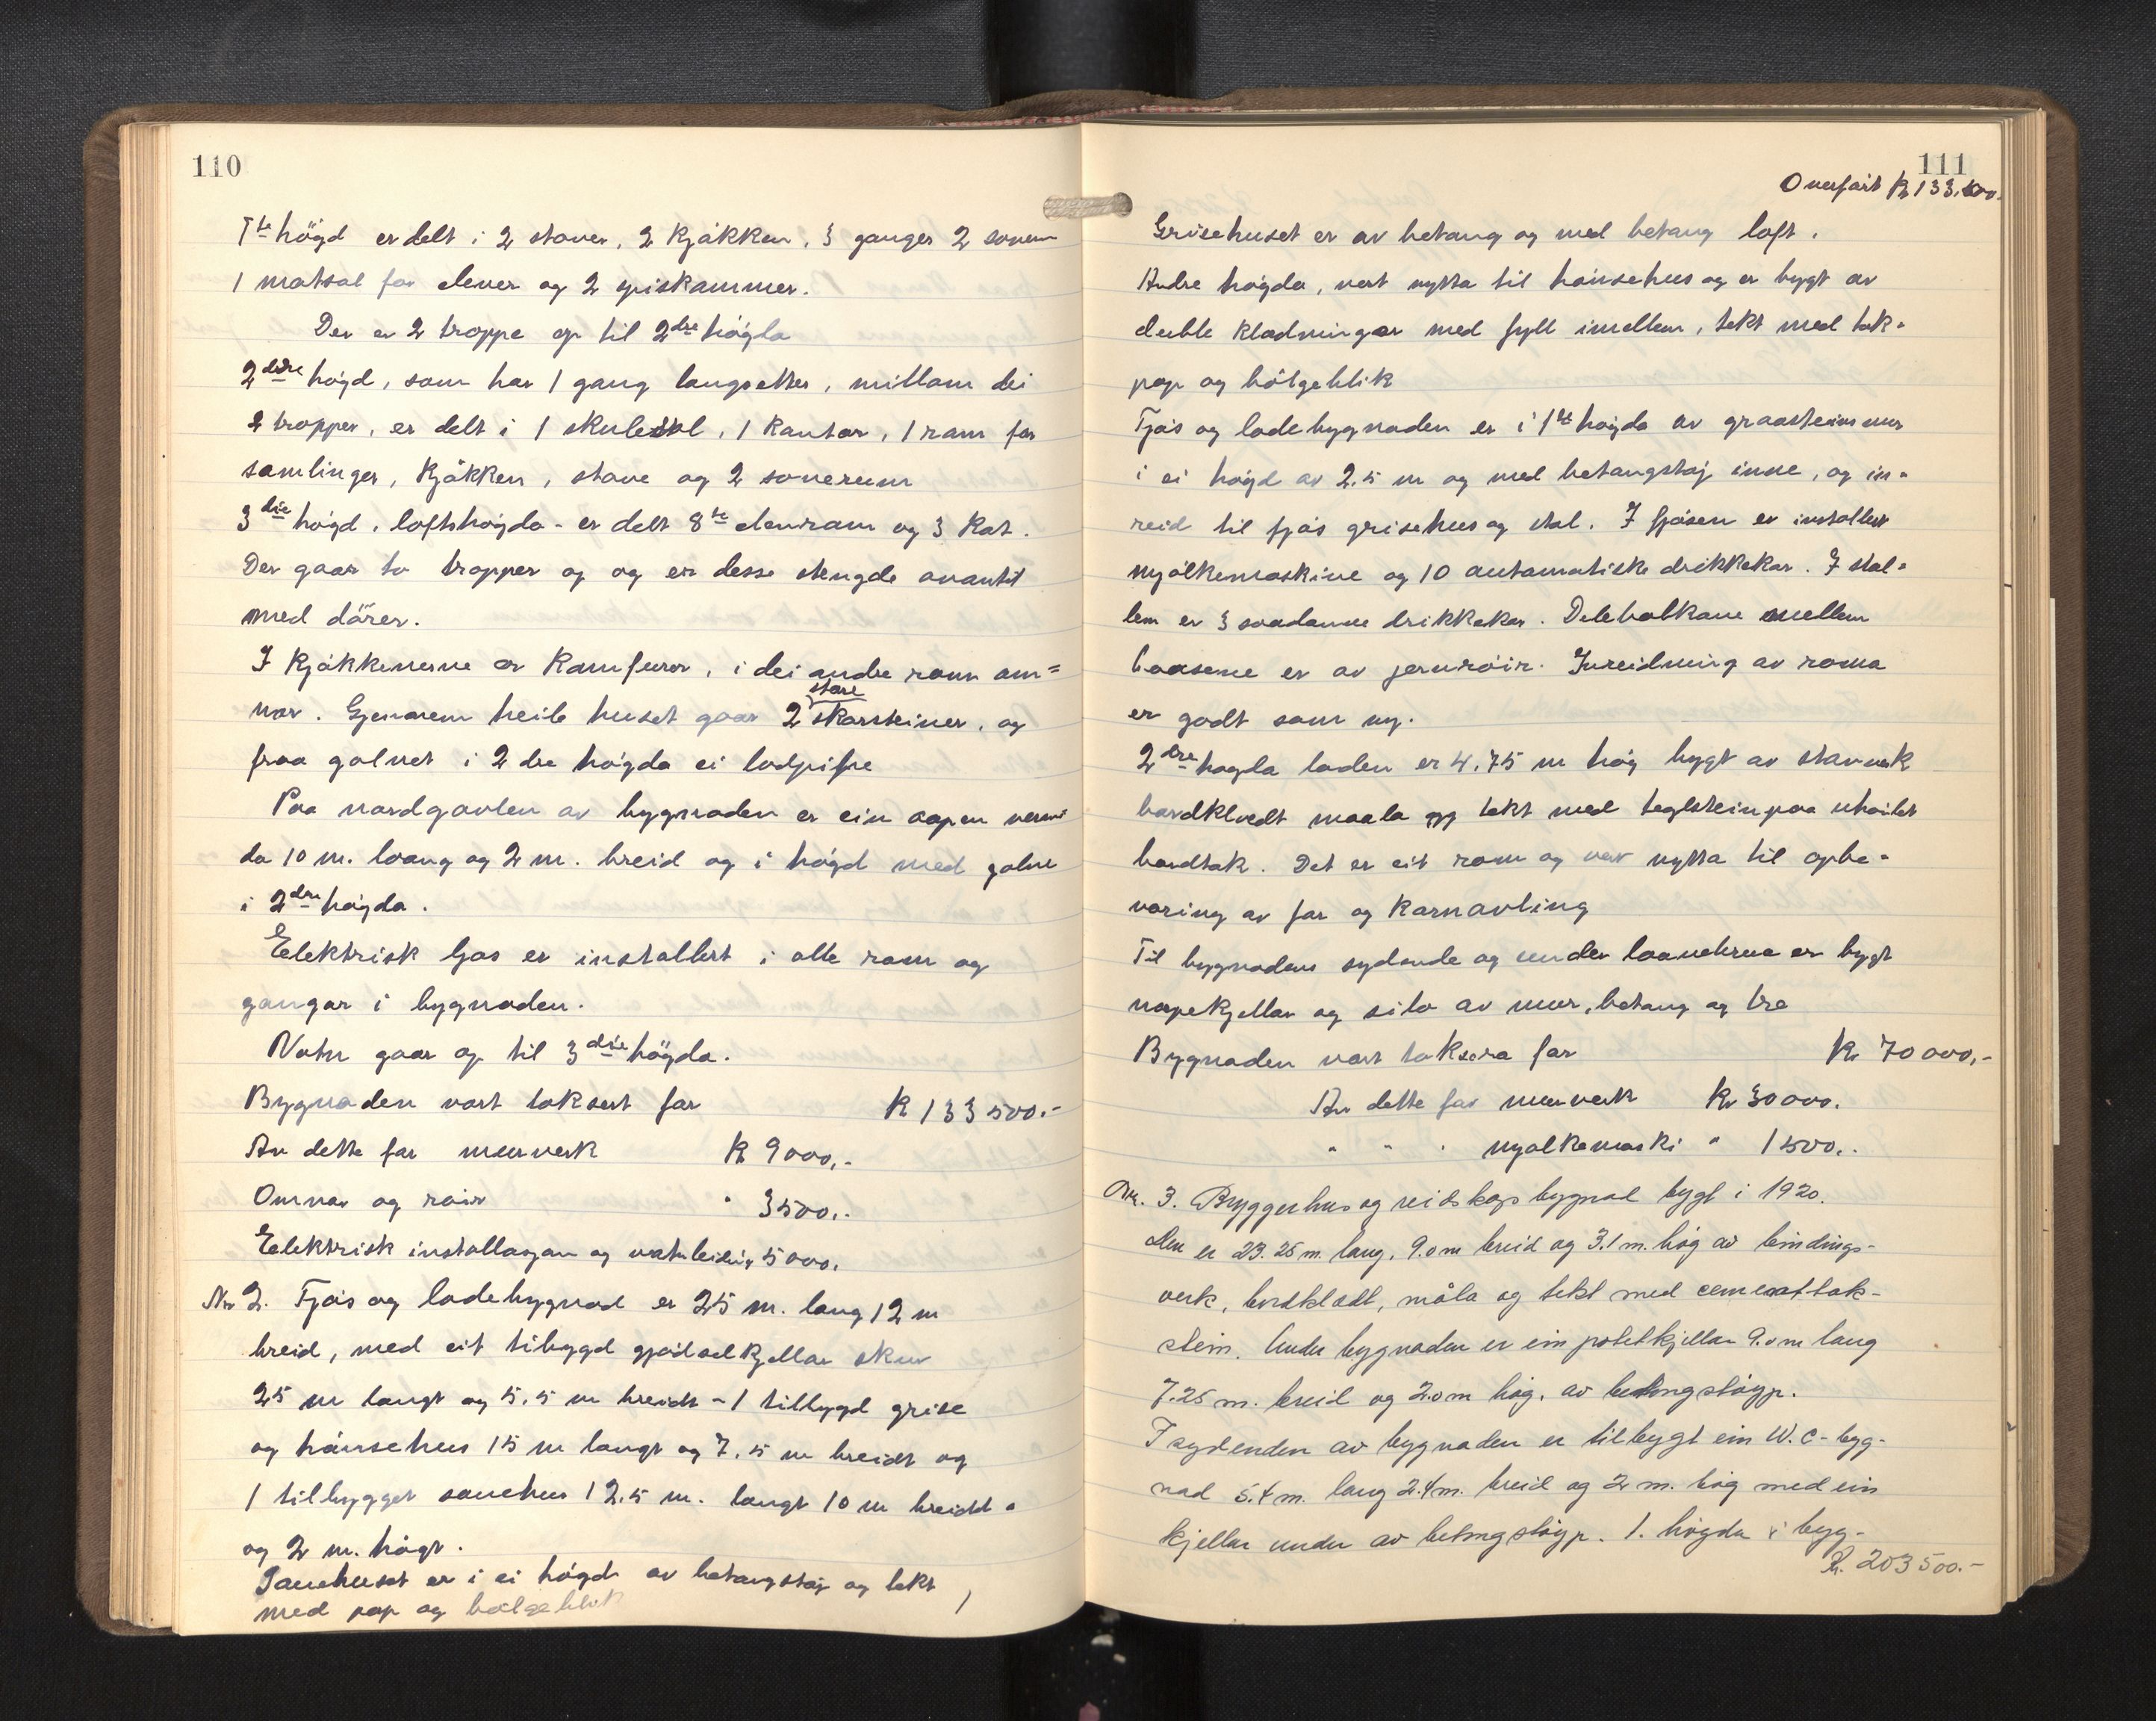 110
1ste högd er delt i 2 stover, 2 kjökken, 3 ganger 2 soverum
1 matsal for elever og 2 spiskammer.
Der er 2 troppe op til 2dre högda
2dre högd, som har 1 gang langsetter, millom dei
2 tropper, er delt i 1 skulesal, 1 kantor, 1 rom for
samlinger, kjökken, stove og 2 soverum
3die högd, loftshögda - er delt 8te elevrom og 3 kot.
Der gaar to tropper op og er desse stengde ovantil
med dörer.
I kjökkenerne er komfurer, i dei andre rom om=
nar. Gjenorem heile huset gaar 2 store skorsteiner, og
fraa golvet i 2dre högda ei lodpipe
Paa nordgavlen av bygnaden er ein aapen veran
da 10 m. laang og 2 m. breid og i högd med golve
i 2dre högda.
Elektrisk ljos er installert i alle rom og
gangar i bygnaden.
Vatn gaar op til 3die högda.
Bygnaden vart taksert for Kr 133 500.-
Av dette for murverk Kr 9000,-
Omnar og röir " 3500,-
Elektrisk installasjon og vatnleidin 5000.
Nr 2. Fjös og lödebygnad er 25 m. lang 12 m
breid, med eit tilbygd gjödselkjellar skur
25 m langt og 5.5 m breidt - 1 tilbygd grise
og hönsehus 15 m langt og 7.5 m breidt og
1 tilbygget sauehus 12.5 m. langt 10 m breidt
og 2 m. högt.
Sauehuset er i ei högd av betongstöp og tekt
med pap og bölgeblik
111
Overfört Kr 133.500.
Grisehuset er av betong og med betong loft.
Andre högda, vert nytta til hönsehus og er bygt av
duble kledningar med fyll imellem, tekt med tak-
pap og bölgeblik
Fjös og lödebygnaden er i 1ste högda av graasteinsmur
i ei högd av 2.5 m og med betongstöp inne, og in-
reid til fjös grisehus og stal. I fjösen er installert
mjölkemaskine og 10 automatiske drikkekar. I stal-
len er 3 saadanne drikkekar. Delebolkane mellem
baasene er av jernröir. Inreidning av roma
er godt som ny.
2dre högda löden er 4.75 m hög bygt av stavverk
bordkledt maala og tekt med teglstein paa uhövlet
bordtak. Det er eit rom og vert nytta til opbe-
varing av for og kornavling
Til bygnadens sydende og under laavebrua er bygt
nepekjellar og silo av mur, betong og tre
Bygnaden vart taksera for Kr 70 000,-
Av dette for murverk Kr 30 000.
" " " mjölkemaski " 1500,-
Nr. 3. Bryggerhus og reidskapsbygnad bygt i 1920.
Den er 23.25 m. lang, 9.0 m breid og 3.1 m. hög av bindings-
verk, bordkledt, måla og tekt med cementtak-
stein. Under bygnaden er ein potetkjellar 9.0 m lang
7.25 m. breid og 2.0 m hög, av betongstöyp.
I sydenden av bygnaden er tilbygt ein W.C-byg-
nad 5.4 m. lang 2.4 m. breid og 2 m. hög med ein
kjellar under av betongstöyp. 1. högda i byg-
Kr. 203 500.-